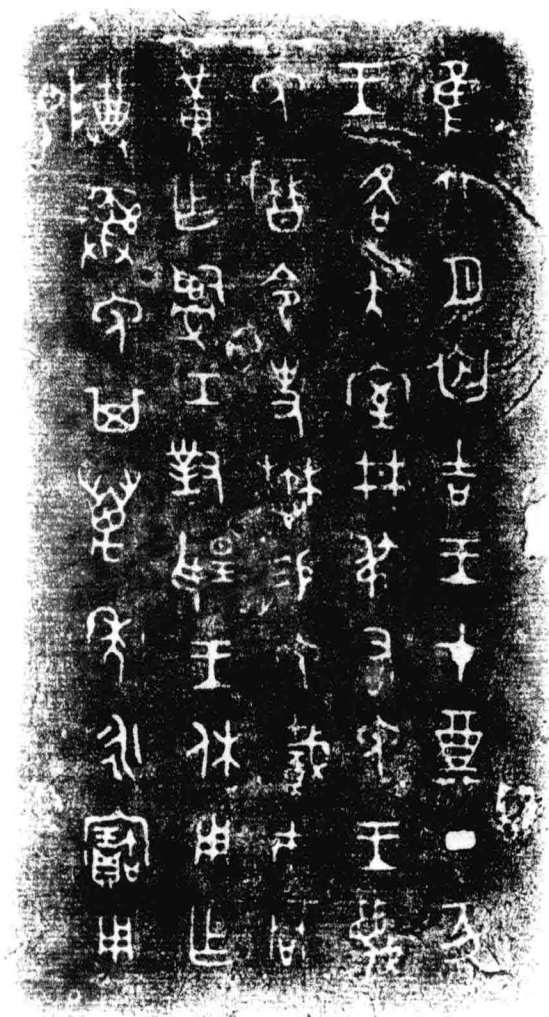 隹六月初吉王才奠丁亥
王各大室井弔右免王蔑
免曆令史懋易免𢧜巿冋
黃乍𤔲工對揚王休用乍
𨻰彝免其萬年永寶用